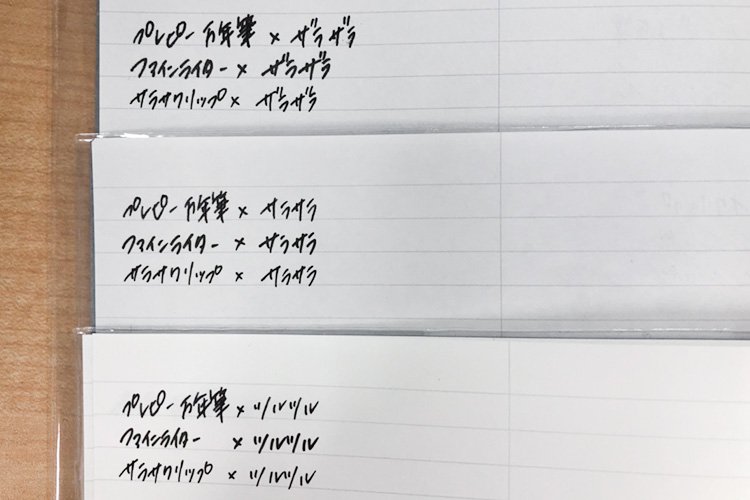 プレピー万年筆 × ザラザラ
ファインライター × ザラザラ
サラサクリップ × ザラザラ
プレピー万年筆 × サラサラ
ファインライター × サラサラ
サラサクリップ × サラサラ
プレピー万年筆 × ツルツル
ファインライター × ツルツル
サラサクリップ × ツルツル